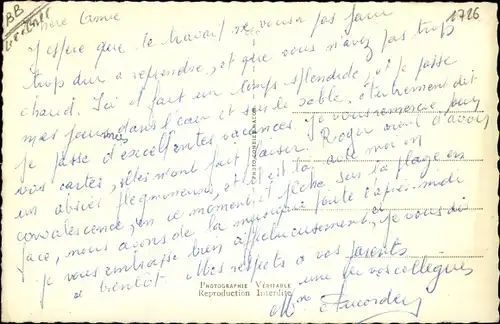 BB
1726
Chère Amie
J'espère que le travail ne vous a pas paru
trop dur à reprendre, et que vous n'avez pas trop
chaud. Ici il fait un temps splendide, et je passe
mes journées dans l'eau et sur le sable, autrement dit
je passe d'excellentes vacances. Je vous remercie pour
vos cartes, elles m'ont fait plaisir. Roger vient d'avoir
un abcès et il est là avec moi en
convalescence, en ce moment il pêche sur la plage en
face, nous avons de la musique toute l'après-midi
je vous embrasse bien affectueusement, et je vous dis
à bientôt Mes respects à vos parents
une de vos collègues
PHOTOGRAPHIE VÉRITABLE
Reproduction Interdite